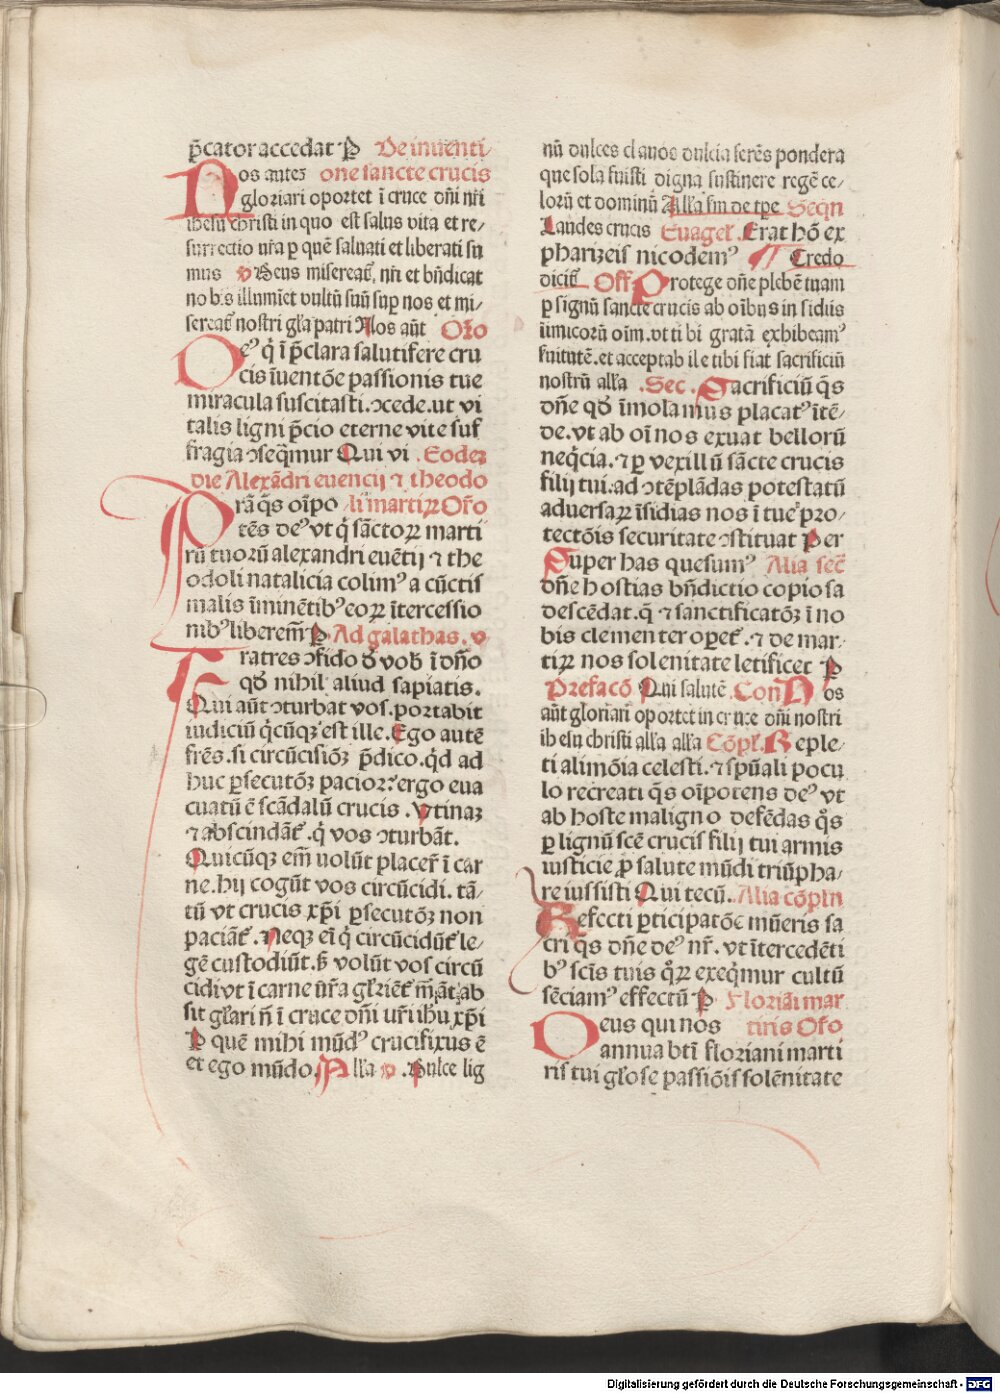 p̄cator accedat P̄ De inuenti⸗
Nos auteʒ one sancte crucis
gloriari oportet ī cruce dn̄i nr̄i
ihesu christi in quo est salus vita et re⸗
surrectio nr̄a p quē saluati et liberati su
mus v Deus misereat᷑ nr̄i et bn̄dicat
nobis illumīet vultū suū sup nos et mi⸗
sereat᷑ nostri gl̄a patri Nos aūt Oro
Deꝰ q̇ ī p̄clara salutifere cru
cis īuentōe passionis tue
miracula suscitasti.ↄcede.ut vi
talis ligni p̄cio eterne vite suf
fragia ↄseq̄mur Qui vi .Eodeʒ
die Alexādri euencij ⁊ theodo
Prā q̄s oīpo li martiꝝ Oro
tēs deꝰ vt q̇ sāctoꝝ marti
rū tuorū alexandri euētij ⁊ the
odoli natalicia colimꝰ a cūctis
malis īminētibꝰ eoꝝ ītercessio
nibꝰ liberem̄ P̄ Ad galathas. v
Fratres ↄfido đ vob̄ ī dn̄o
qđ nihil aliud sapiatis.
Qui aūt ↄturbat vos.portabit
iudiciū q̇cūqꝫ est ille.Ego autē
frēs.si circūcisiōꝫ p̄dico.q̇d ad
huc ꝑsecutōꝫ pacior?ergo eua
cuatū ē scādalū crucis .vtinaʒ
⁊ abscindāt᷑.q̇ vos ↄturbāt.
Quicūqꝫ em̄ uolūt placer̄ ī car
ne.hij cogūt vos circūcidi.tā⸗
tū vt crucis xp̄i ꝑsecutōꝫ non
paciāt᷑.Neqꝫ eī q̇ circūcidūt᷑ le⸗
gē custodiūt.ß volūt vos circū
cidi vt ī carne ūr̄a gl̄riēt᷑ m̄ āt ab
sit gl̄ari n̄ ī cruce dn̄i ur̄i ihu xp̄i
P quē mihi mūdꝰ crucifixus ē
et ego mūdo.All̄a v .Dulce lig
nū dulces clauos dulcia ferēs pondera
que sola fuisti digna sustinere regē ce⸗
lorū et dominū All̄a sm de tp̄e Seqn
Laudes crucis Euagel᷑.Erat hō ex
pharizeis nicodemꝰ Credo
dicit᷑ Off Protege dn̄e plebē tuam
p signū sancte crucis ab oībus insidiis
īimicorū oīm.vt tibi gratā exhibeamꝰ
seruitutē.et acceptabile tibi fiat sacrificiū
nostrū all̄a .Sec.Sacrificiū q̄s
dn̄e qđ īmolamus placatꝰ ītē⸗
de.vt ab oī nos exuat bellorū
neq̇cia.⁊ ꝑ vexillū sācte crucis
filij tui.ad ↄtēplādas potestatū
aduersaꝝ īsidias nos ī tue pro⸗
tectōis securitate ↄstituat Per
Super has quesumꝰ Alia sec̄
dn̄e hostias bn̄dictio copiosa
descēdat.q̄ ⁊ sanctificatōꝫ ī no
bis clementer opet᷑.⁊ de mar⸗
tiꝝ nos solenitate letificet P̄
Prefacō Qui salutē.Con Nos
aūt gloriari oportet in cruce dn̄i nostri
ihesu christi all̄a all̄a Cōpl᷑.Reple⸗
ti alimōia celesti.⁊ spūali pocu
lo recreati q̄s oīpotens deꝰ vt
ab hoste maligno defēdas q̄s
ꝑ lignū scē crucis filij tui armis
iusticie ꝓ salute mūdi triūpha⸗
re iussisti Qui tecū.Alia cōpln
Refecti ꝑticipatōe mūeris sa
cri q̄s dn̄e deꝰ nr̄.vt ītercedēti
bꝰ scīs tuis q̄ꝝ exeq̄mur cultū
sēciamꝰ effectū P̄ Floriāi mar
Deus qui nos tiris Oro
annua bt̄i floriani marti
ris tui gl̄ose passiōis solēnitate
Digitalisierung gefördert durch die Deutsche Forschungsgemeinschaft - DFG